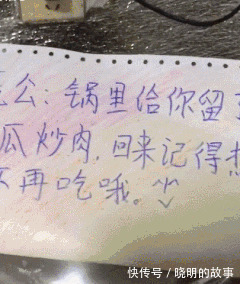 公：锅里给你留
瓜炒肉，回来记得
再吃哦。
快传号／晓明的故事